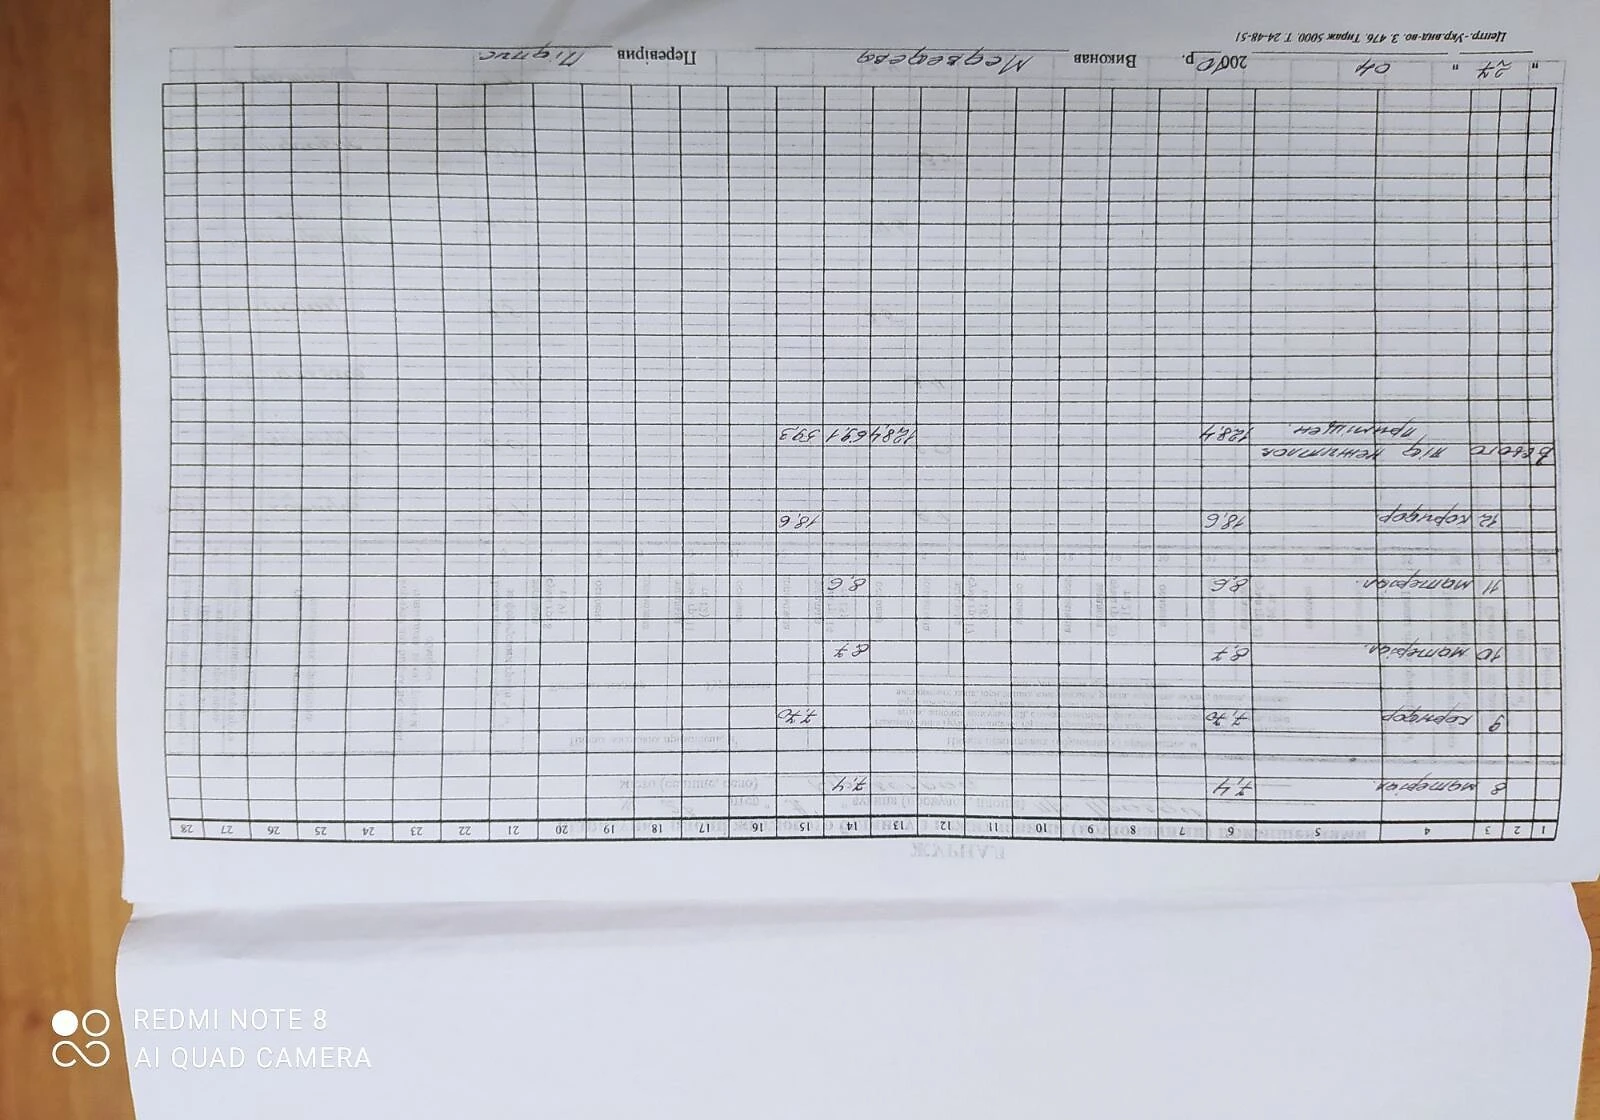 1 2 3 4 5 6 7 8 9 10 11 12 13 14 15 16 17 18 19 20 21 22 23 24 25 26 27 28
8 матеріал. 7,4 7,4
9 коридор 7,70 7,70
10 матеріал. 8,7 8,7
11 матеріал. 8,6 8,6
12 коридор 18,6 18,6
Всього під нежитлов
приміщен. 128,4 128,4 69,1 59,3
" 27 " 04 2000 р. Виконав Медведева Перевірив Підпис
Центр.-Укр.вид-во. З. 476. Тираж 5000. Т. 24-48-51
REDMI NOTE 8
AI QUAD CAMERA